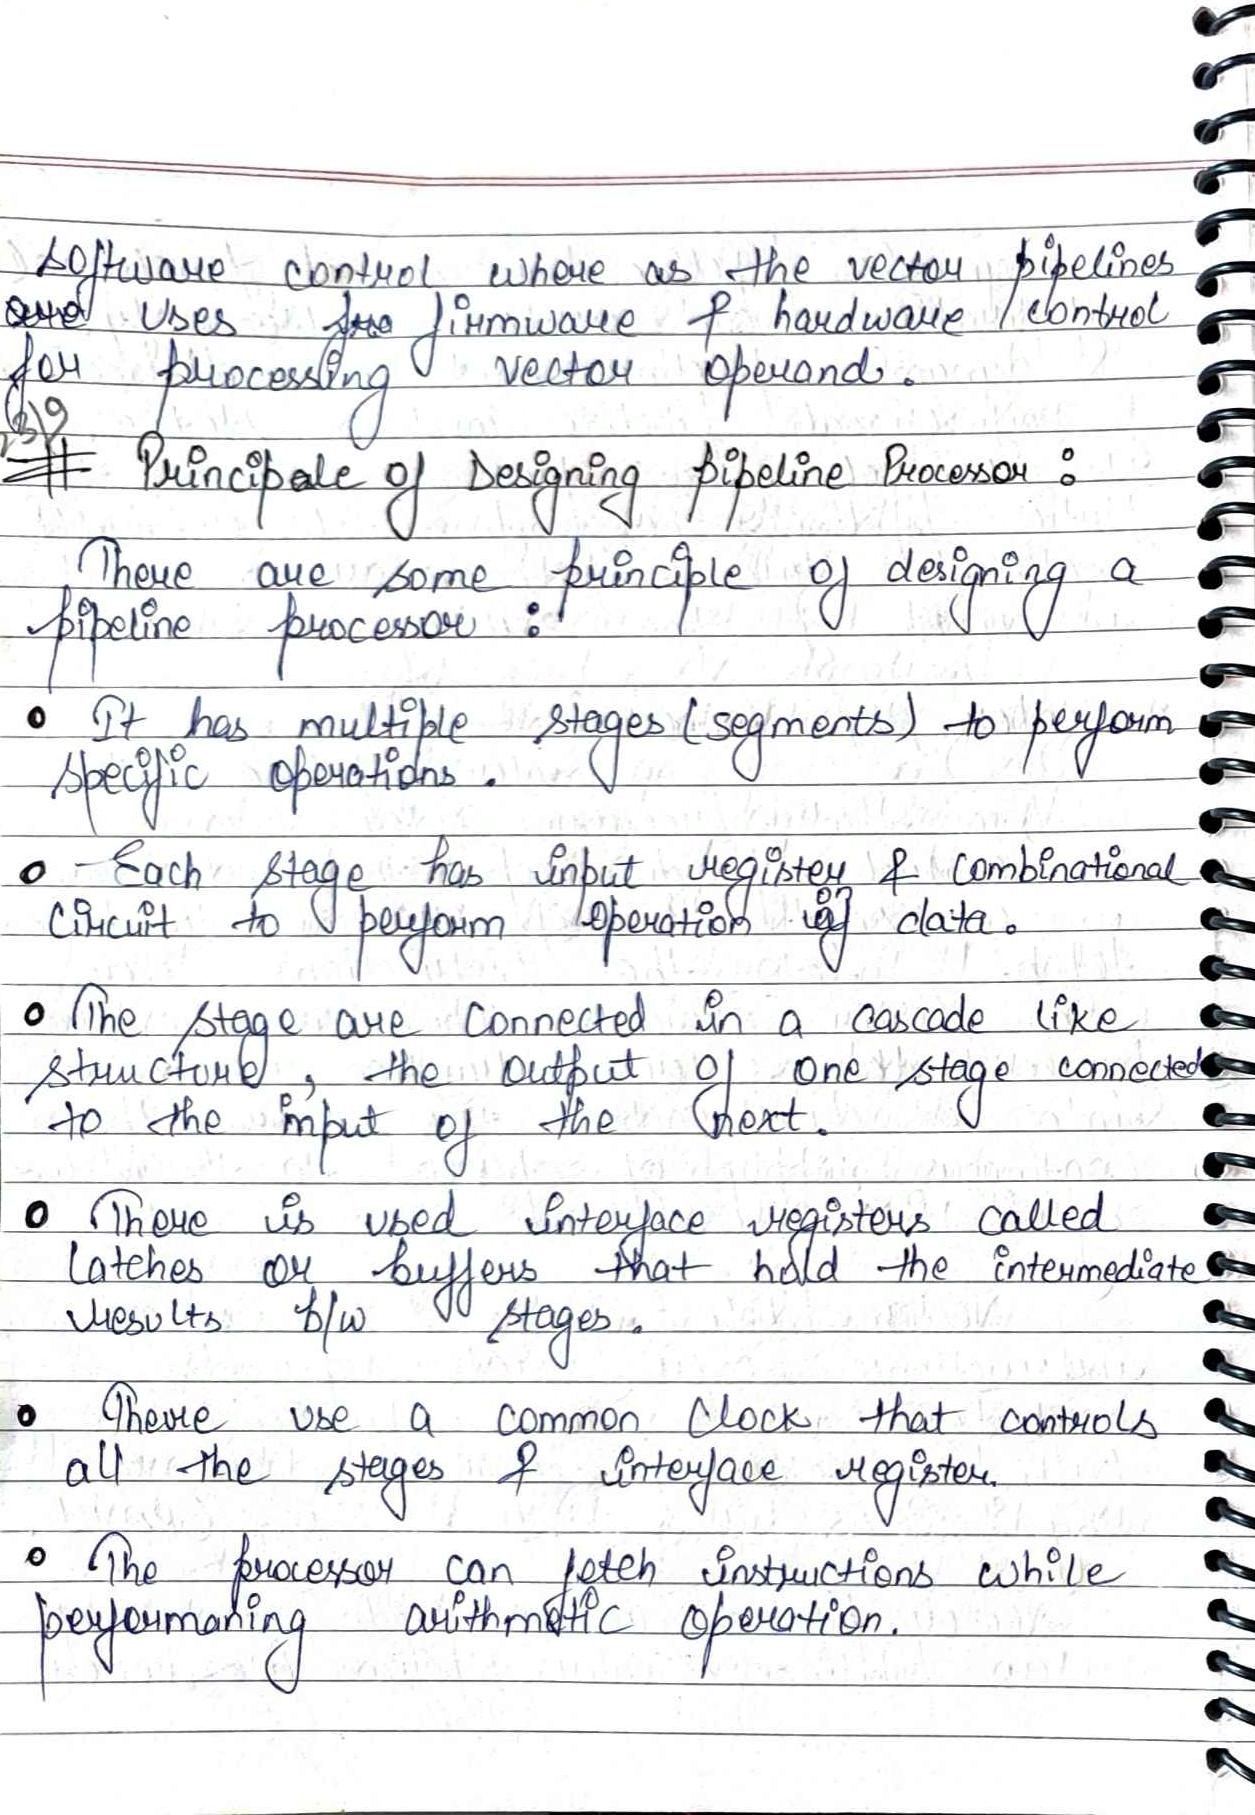 software control where as the vector pipelines
uses firmware & hardware control
for processing vector operand.
# Principale of Designing pipeline Processor :
There are some principle of designing a
pipeline processor :
• It has multiple stages (segments) to perform
specific operations.
• Each stage has input register & combinational
circuit to perform operation on data.
• The stage are connected in a cascade like
structure, the output of one stage connected
to the input of the next.
• There is used interface registers called
latches or buffers that hold the intermediate
results b/w stages.
• There use a common clock that controls
all the stages & interface register.
• The processor can fetch instructions while
performaning arithmetic operation.